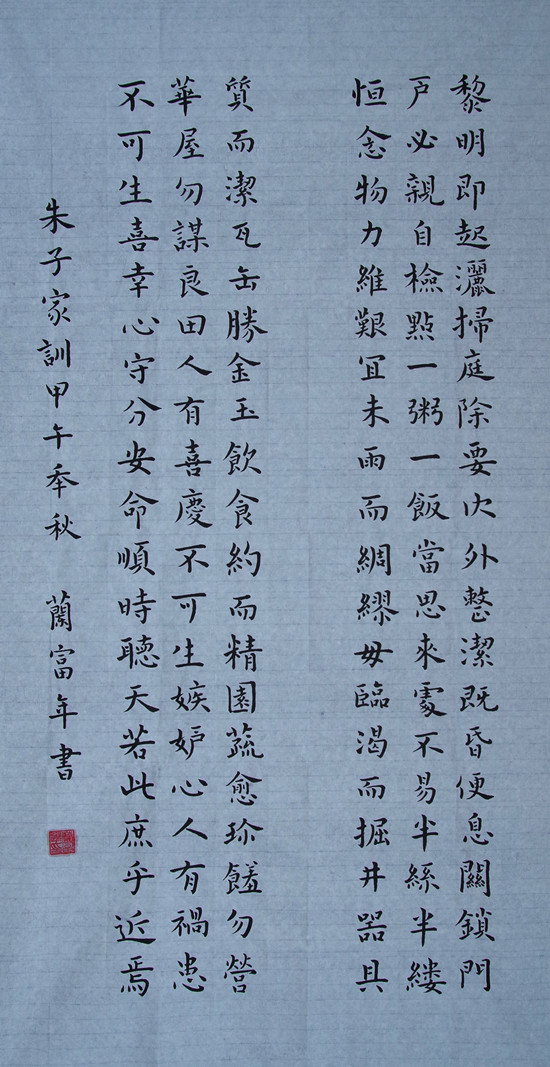 黎明即起灑掃庭除要內外整潔既昏便息關鎖門
戶必親自檢點一粥一飯當思來處不易半絲半縷
恒念物力維艱宜未雨而綢繆毋臨渴而掘井器具
質而潔瓦缶勝金玉飲食約而精園蔬愈珍饈勿營
華屋勿謀良田人有喜慶不可生嫉妒心人有禍患
不可生喜幸心守分安命順時聽天若此庶乎近焉
朱子家訓甲午年秋 蘭富年書